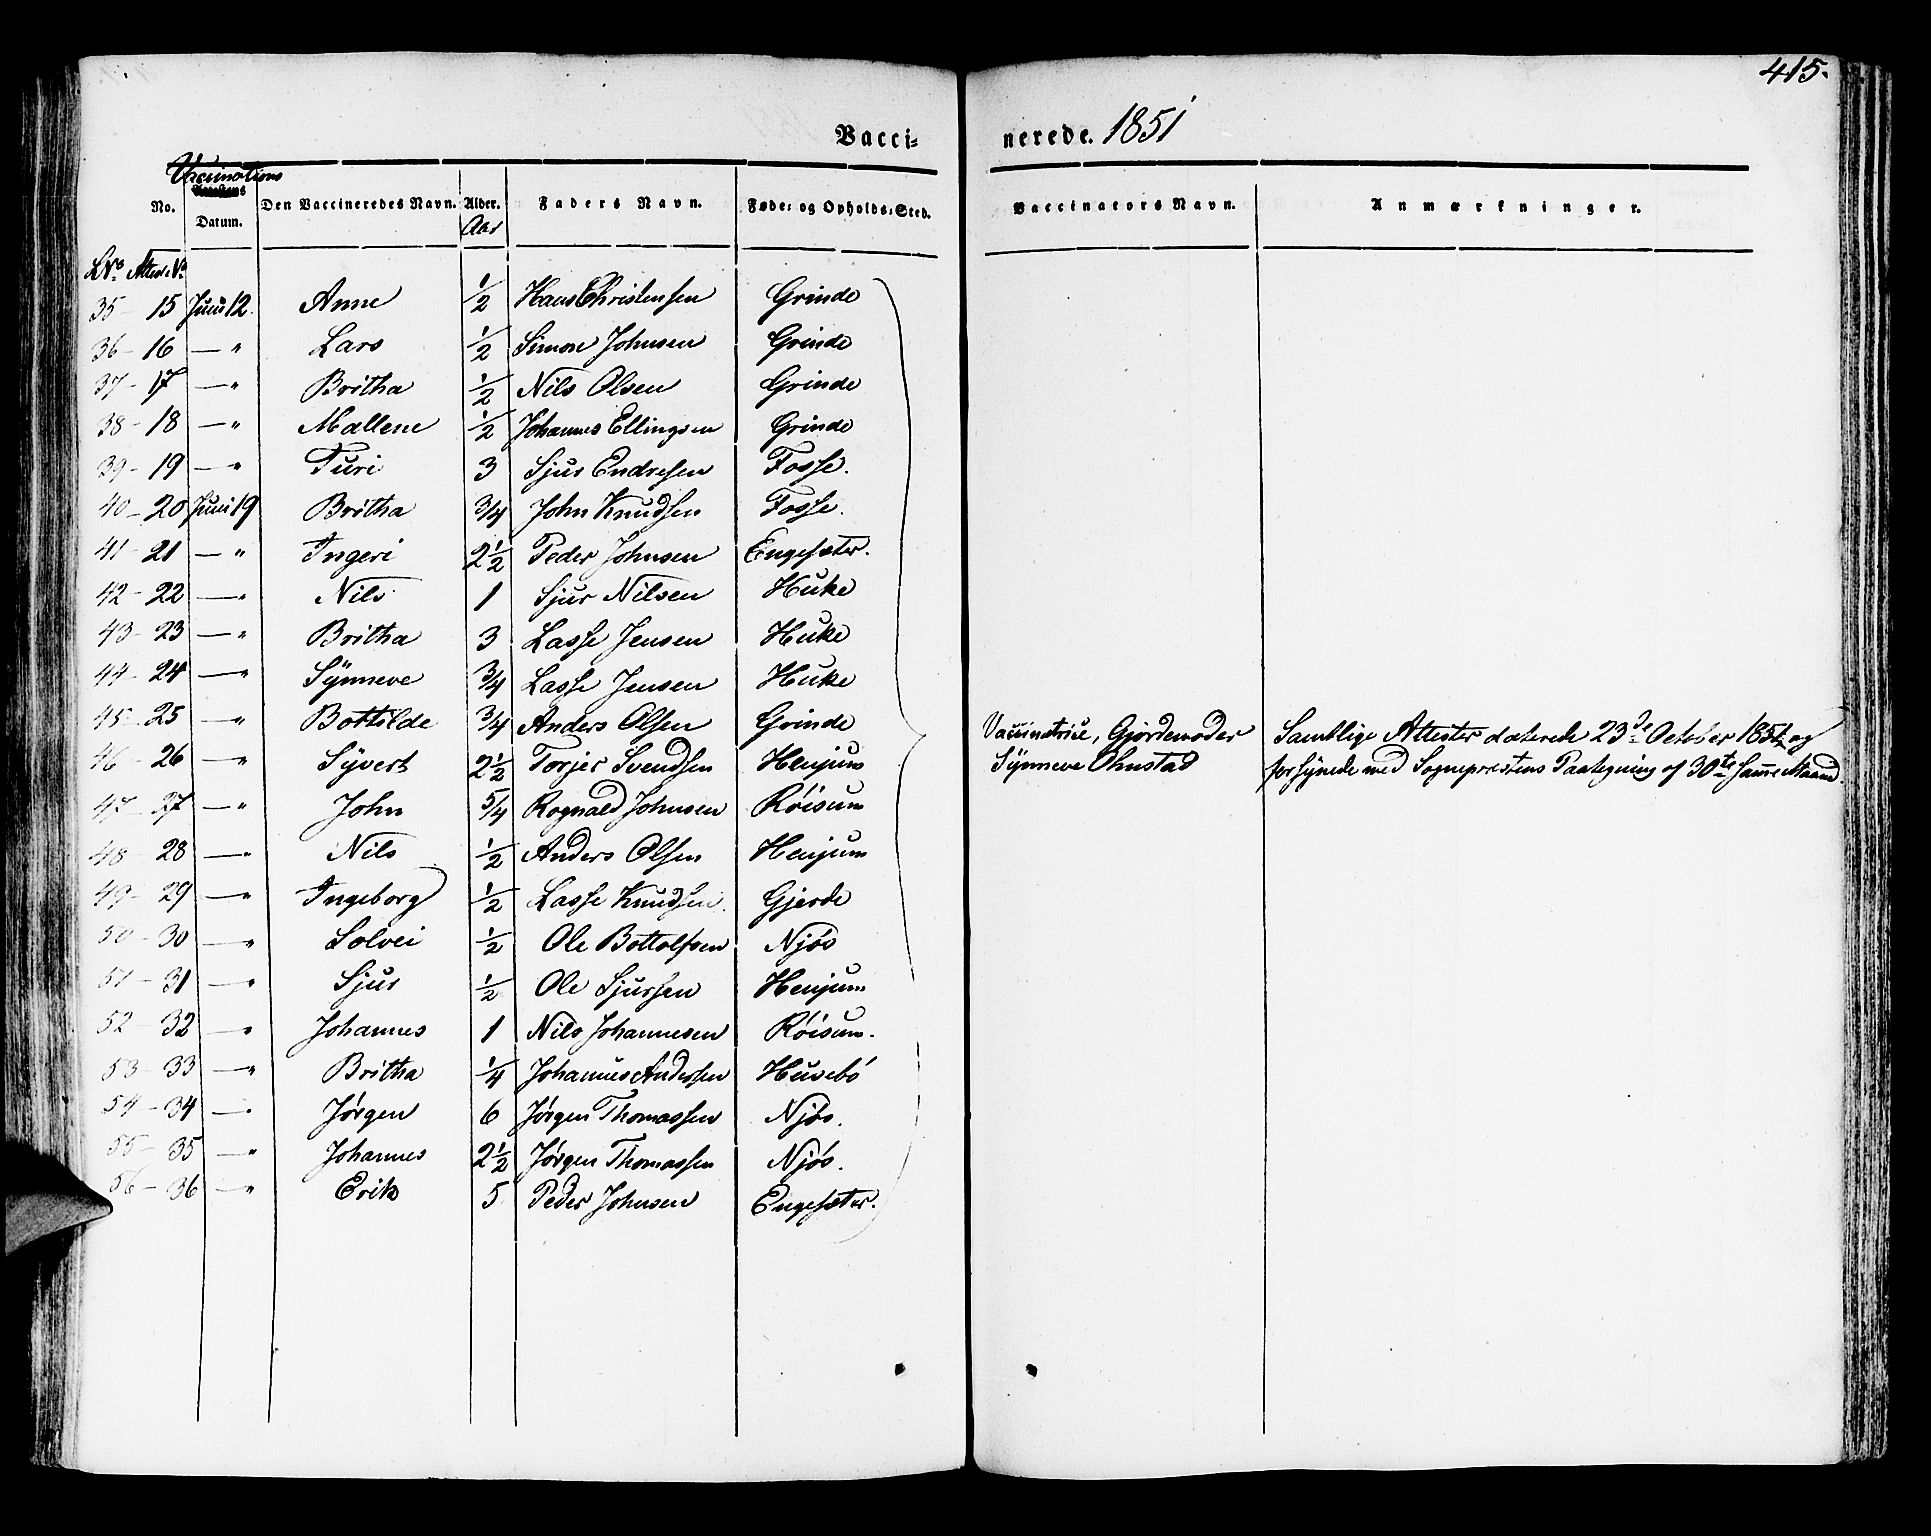 415.
Vacci= nerede. 1851
Vaccinations
No. Datum. Den Vaccineredes Navn. Alder. Faders Navn. Føde= og Opholds=Sted. Vaccinators Navn. Anmærkninger.
Aar
LNo Attest No
35 - 15 Juni 12. Anne 1/2 Hans Christensen Grinde
36 - 16 — " Lars 1/2 Simon Johnsen Grinde
37 - 17 — " Britha 1/2 Nils Olsen Grinde
38 - 18 — " Mallene 1/2 Johannes Ellingsen Grinde
39 - 19 — " Turi 3 Sjur Endresen Fosse.
40 - 20 Juni 19 Britha 3/4 John Knudsen Fosse.
41 - 21 — " Ingeri 2 1/2 Peder Johnsen Engesæter.
42 - 22 — " Nils 1 Sjur Nilsen Huke
43 - 23 — " Britha 3 Lasse Jensen Huke
44 - 24 — " Sÿnneve 3/4 Lasse Jensen Huke
45 - 25 — " Bottilde 3/4 Anders Olsen Grinde Vaccinatrice, Gjordemoder Samtlige Attester daterede 23de October 1851, og
46 - 26 — " Sÿvert 2 1/2 Torjer Svendsen Henjum Sÿnneve Ohnstad forsÿnede med Sognepræstens Paategning af 30te samme Maaned.
47 - 27 — " John 5/4 Rognald Johnsen Röisum
48 - 28 — " Nils 1/2 Anders Olsen Henjum
49 - 29 — " Ingeborg 1/2 Lasse Knudsen. Gjerde
50 - 30 — " Solvei 1/2 Ole Bottolfsen Njös
51 - 31 — " Sjur 1/2 Ole Sjursen Henjum
52 - 32 — " Johannes 1 Nils Johannesen Röisum.
53 - 33 — " Britha 1/4 Johannes Andersen Husebö
54 - 34 — " Jörgen 6 Jörgen Thomassen Njös.
55 - 35 — " Johannes 2 1/2 Jörgen Thomassen Njös.
56 - 36 — " Erik 5 Peder Johnsen Engesæter.